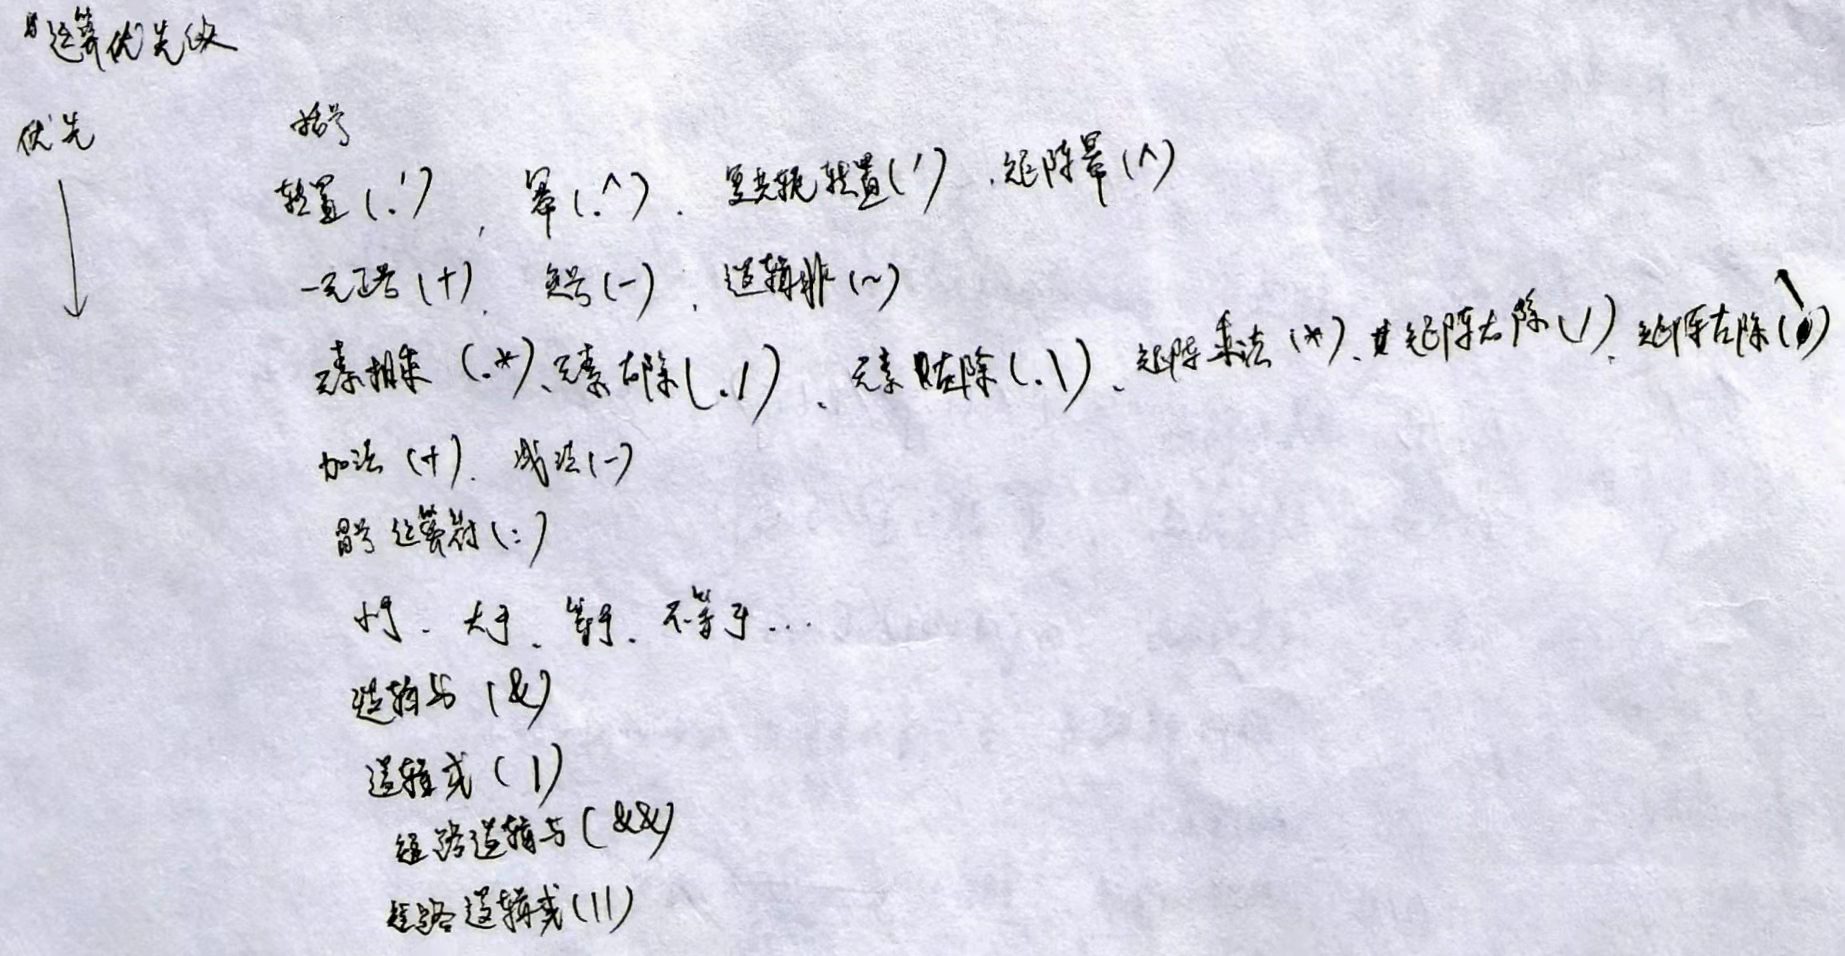 运算优先级
优先
括号
转置(.')、幂(.^)、复共轭转置(')、矩阵幂(^)
一元正号(+)、负号(-)、逻辑非(~)
元素相乘(.*)、元素右除(./)、元素左除(.\)、矩阵乘法(*)、矩阵右除(/)、矩阵左除(\)
加法(+)、减法(-)
冒号运算符(:)
小于、大于、等于、不等于...
逻辑与(&)
逻辑或(|)
短路逻辑与(&&)
短路逻辑或(||)